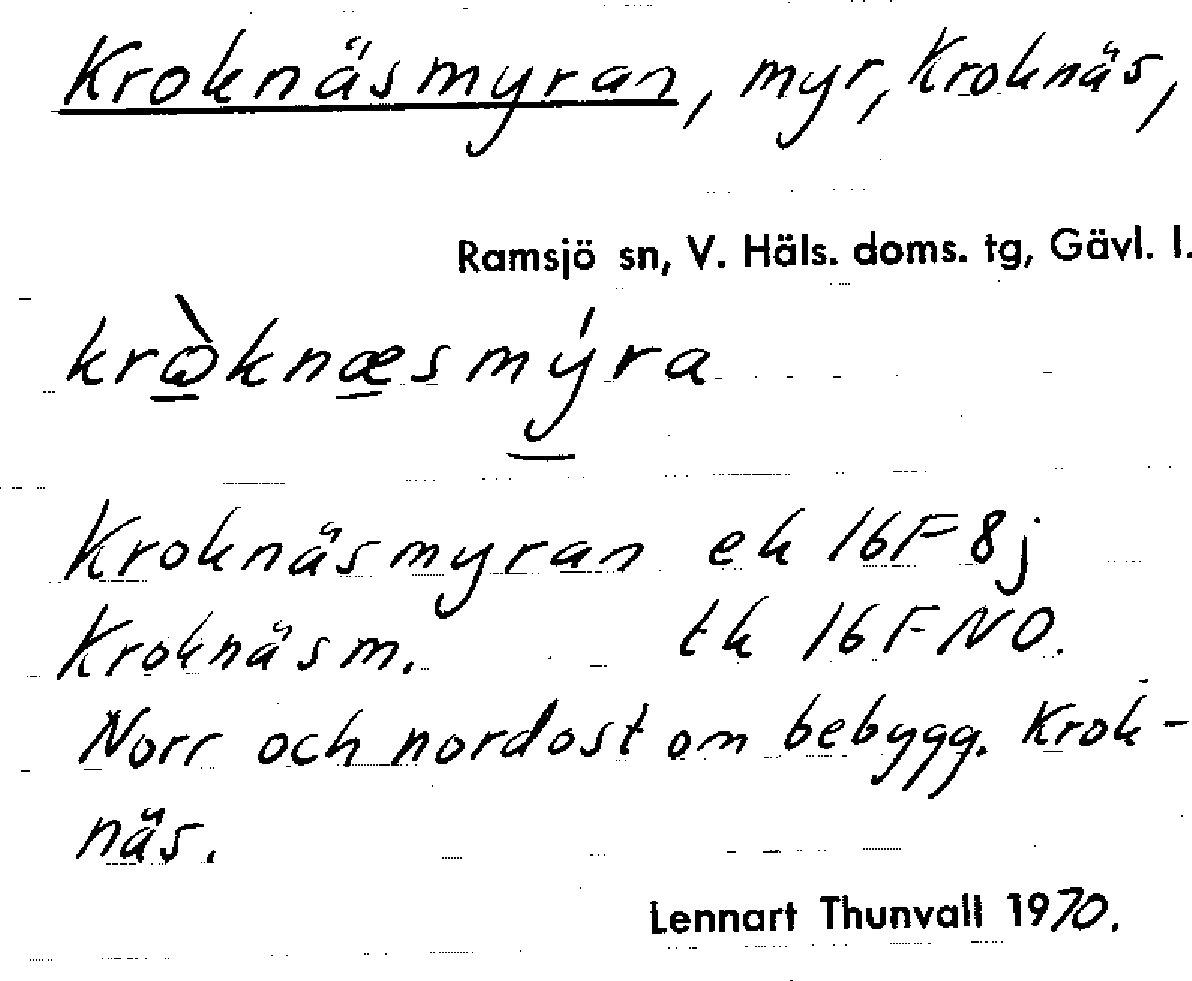 Kroknäsmyran, myr, Kroknäs,
Ramsjö sn, V. Häls. doms. tg, Gävl. l.
krὼknæsmýra
Kroknäsmyran ek 16F8j
Kroknäsm. tk 16FNO.
Norr och nordost om bebygg. Krok-
näs.
Lennart Thunvall 1970.